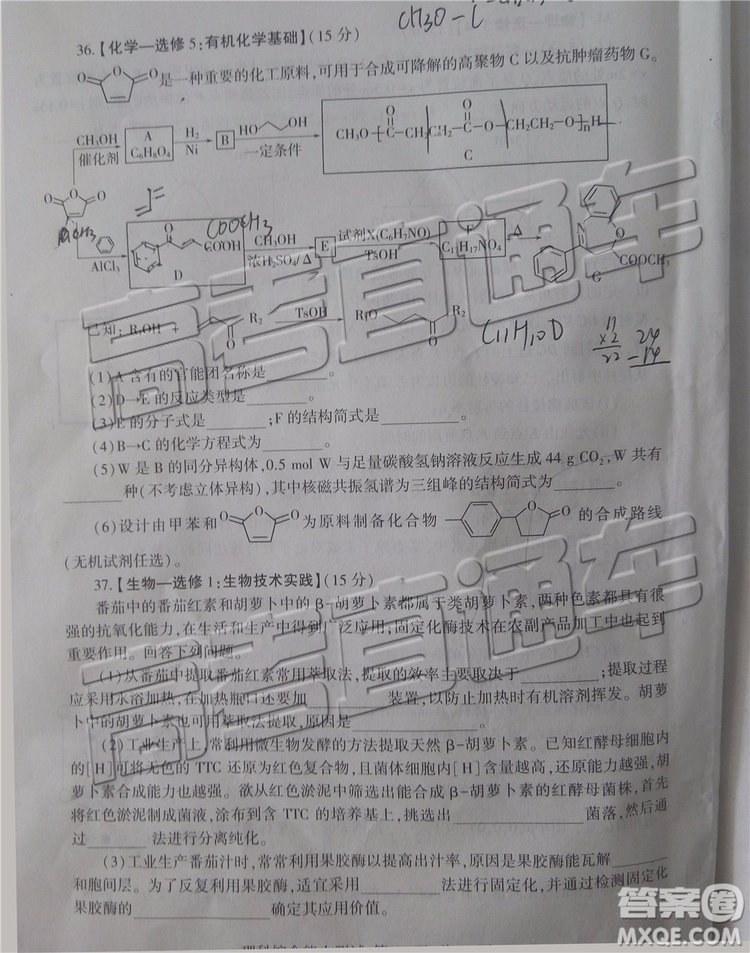 CH3O-C
36.【化学—选修5:有机化学基础】(15分)
是一种重要的化工原料,可用于合成可降解的高聚物C以及抗肿瘤药物G。
CH₃OH 催化剂 A C₆H₈O₄ H₂ Ni B HO OH 一定条件 CH₃O C CH₂CH₂ C O CH₂CH₂ O n H
C
COOCH3
AlCl₃ COOH D CH₃OH 浓H₂SO₄/△ E 试剂X(C₆H₇NO) TsOH F C₁₇H₁₇NO₄ △ N O COOCH₃ G
已知:R₁OH + R₂ O TsOH R₁O R₂ O
C11H10O
11 ×2 22 24 -14
(1)A含有的官能团名称是
。
(2)D→E的反应类型是
。
(3)E的分子式是
;F的结构简式是
。
(4)B→C的化学方程式为
。
(5)W是B的同分异构体,0.5 mol W与足量碳酸氢钠溶液反应生成44 g CO₂,W共有
种(不考虑立体异构),其中核磁共振氢谱为三组峰的结构简式为
。
(6)设计由甲苯和 为原料制备化合物 的合成路线
(无机试剂任选)。
37.【生物—选修1:生物技术实践】(15分)
番茄中的番茄红素和胡萝卜中的β-胡萝卜素都属于类胡萝卜素,两种色素都具有很
强的抗氧化能力,在生活和生产中得到广泛应用,固定化酶技术在农副产品加工中也起到
重要作用。回答下列问题。
(1)从番茄中提取番茄红素常用萃取法,提取的效率主要取决于
;提取过程
应采用水浴加热,在加热瓶口还要加
装置,以防止加热时有机溶剂挥发。胡萝
卜中的胡萝卜素也可用萃取法提取,原因是
。
(2)工业生产上,常利用微生物发酵的方法提取天然β-胡萝卜素。已知红酵母细胞内
的[H]可将无色的TTC还原为红色复合物,且菌体细胞内[H]含量越高,还原能力也越强,胡
萝卜素的产量也越高。欲从红色淤泥中筛选出能合成β-胡萝卜素的红酵母菌株,首先
将红色淤泥制成菌液,涂布到含TTC的培养基上,挑选出
菌落,然后通
过
法进行分离纯化。
(3)工业生产番茄汁时,常常利用果胶酶以提高出汁率,原因是果胶酶能瓦解
和胞间层。为了反复利用果胶酶,适宜采用
法进行固定化,并通过检测固定化
果胶酶的
确定其应用价值。
高考直通车
高考直通车
高考直通车
答案圈
MXQE.COM